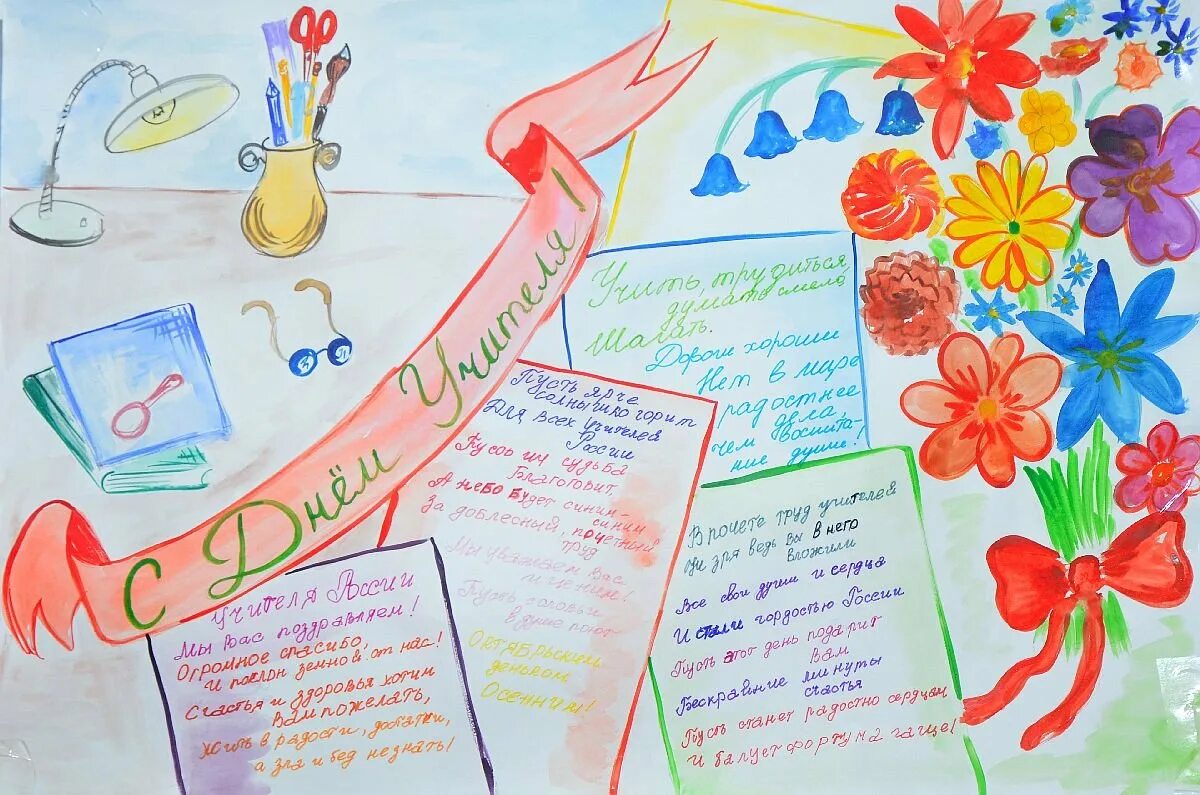 С Днём Учителя!
Учить, трудиться,
думать смело,
Шагать.
Дороги хороши
Нет в мире
радостнее
дела,
чем Воспита-
ние души!
Пусть ярче
солнышко горит
Для всех учителей
России
Пусть им судьба
Благоговит,
А небо будет синим-
синим
За доблесный, почётный
труд
Мы уважаем Вас
и ценим!
Пусть соловьи
в душе поют
Октябрьским
деньком
Осенним!
Учителя России
Мы Вас поздравляем!
Огромное спасибо,
и поклон земной от нас!
Счастья и здоровья хотим
Вам пожелать,
Жить в радости, достатке,
а зла и бед не знать!
В почете труд учителей
Ни зря ведь вы в него
вложили
Все свои души и сердца
И стали гордостью России
Пусть этот день подарит
Вам
Бескрайние минуты
счастья
Пусть станет радостно сердцам
И балует фортуна чаще!